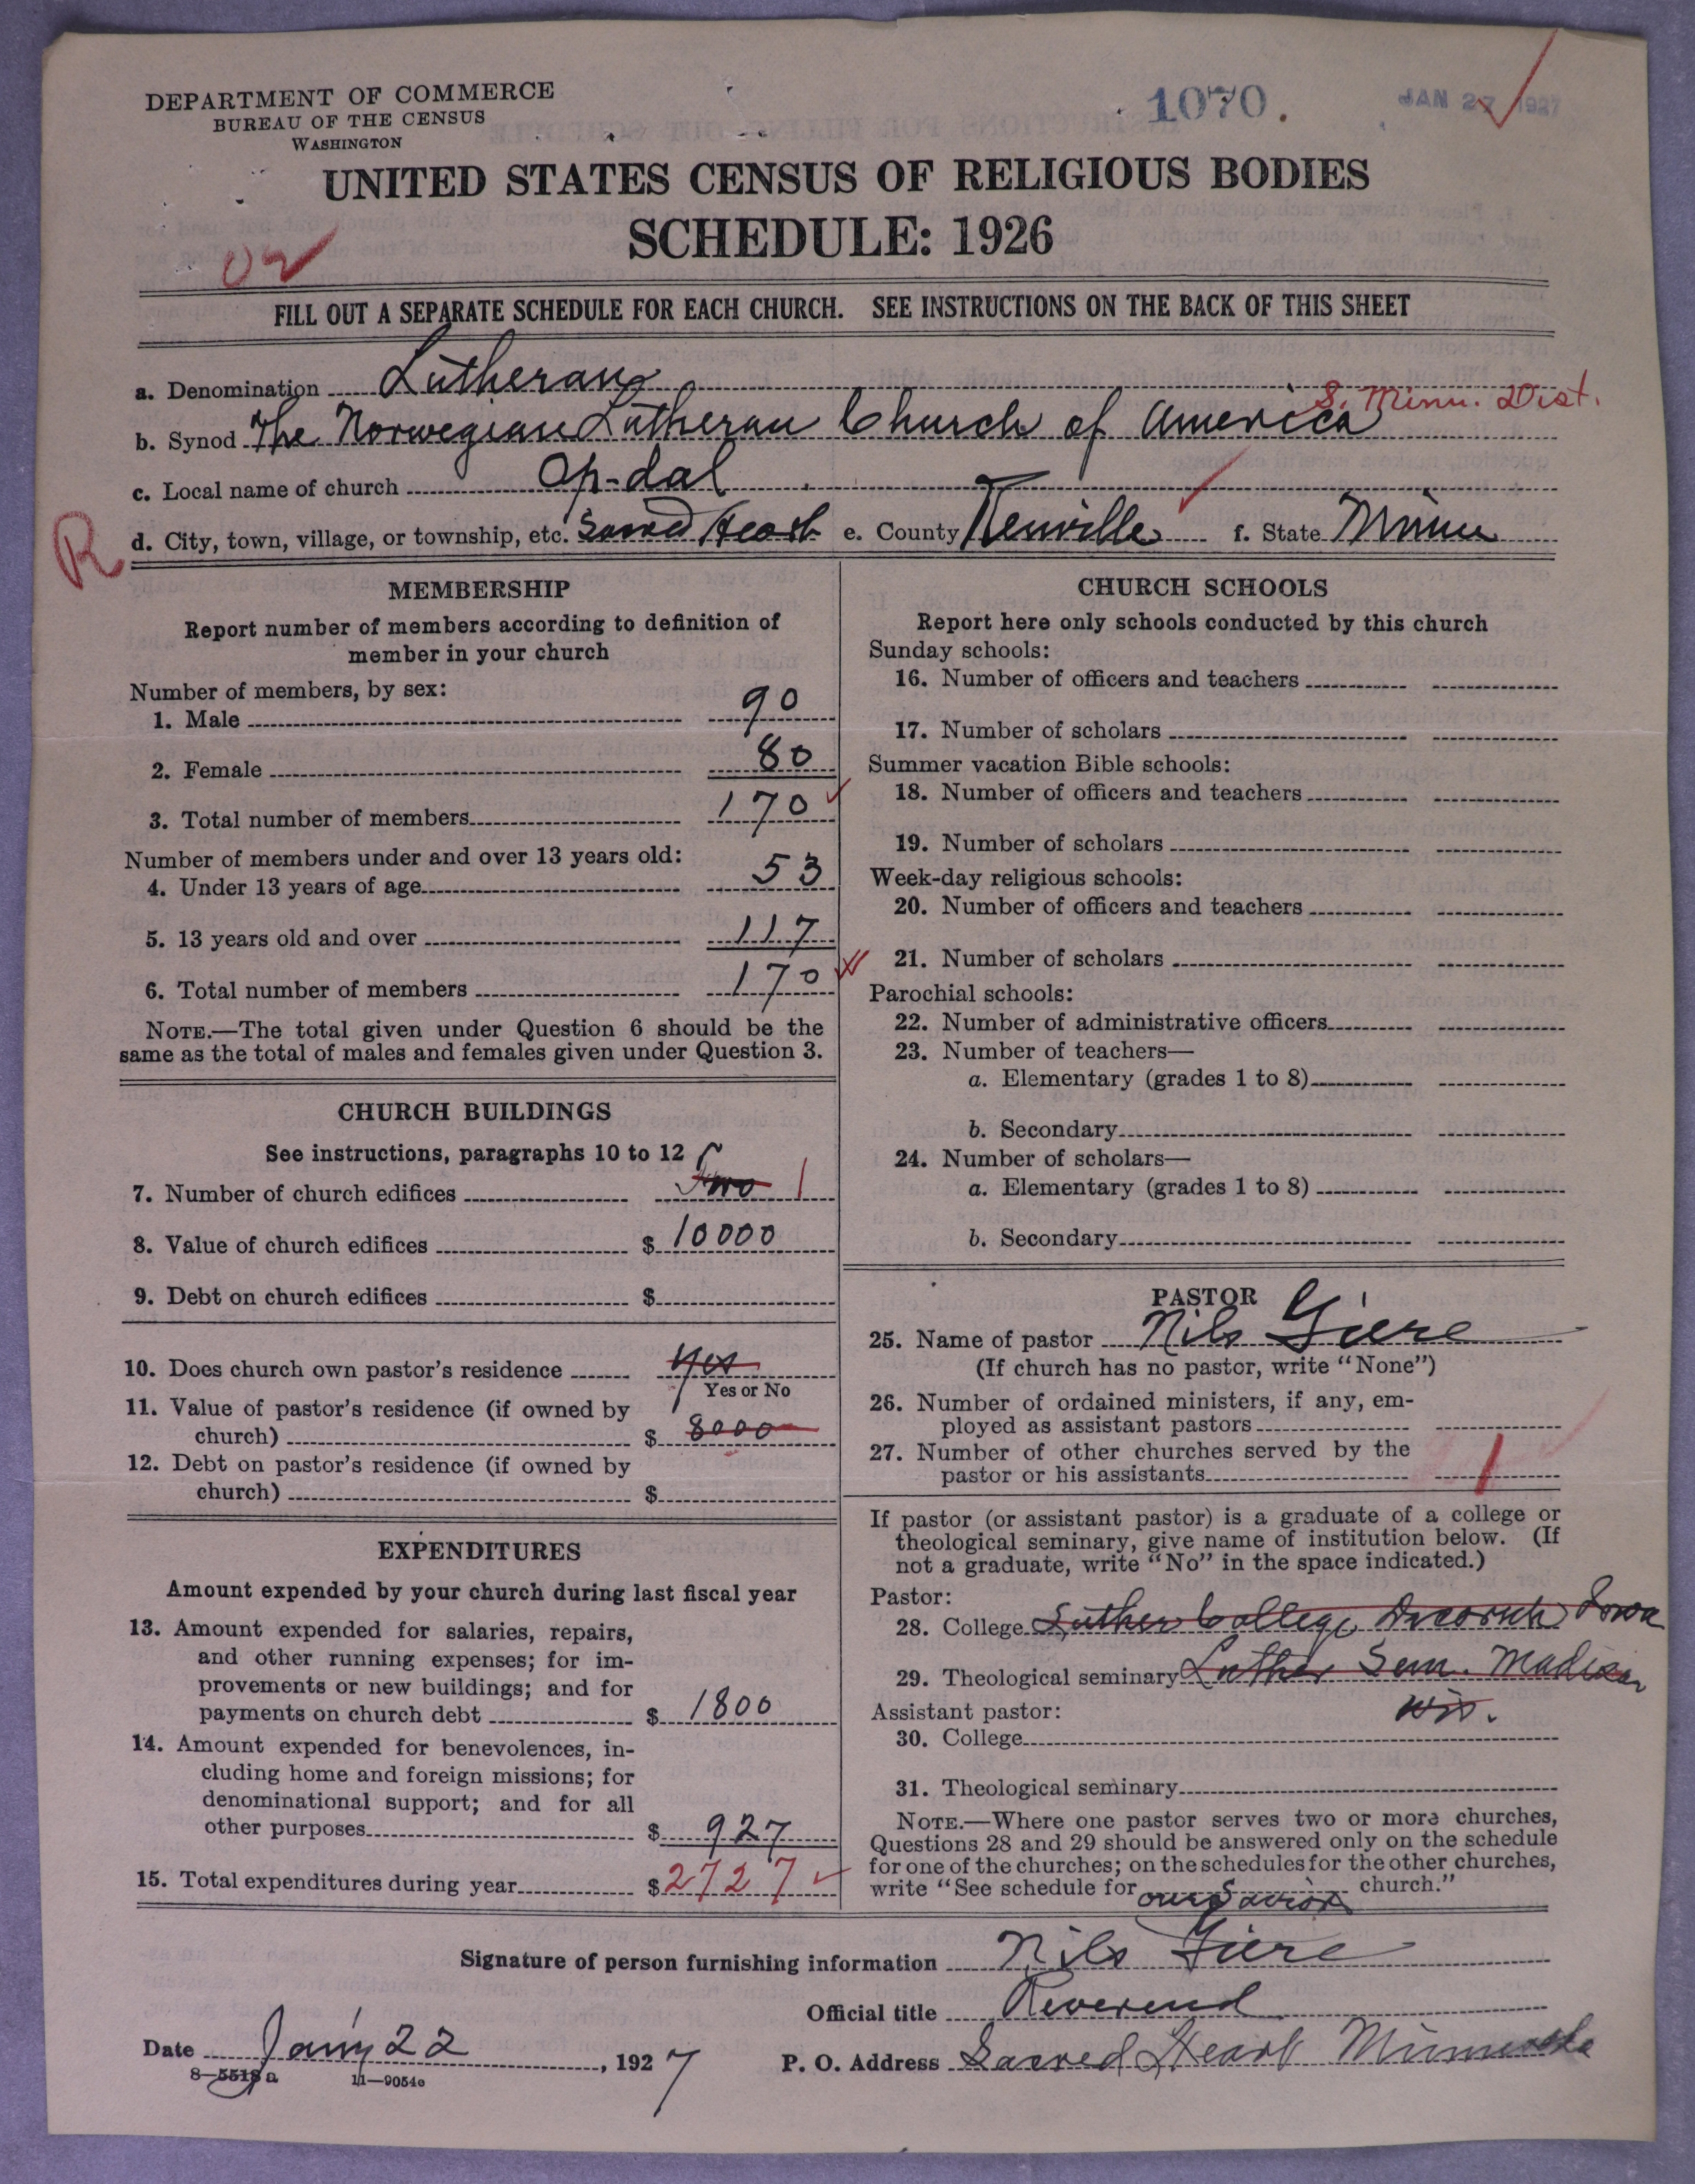 DEPARTMENT OF COMMERCE
BUREAU OF THE CENSUS
WASHINGTON
1070.
JAN 27 1927
UNITED STATES CENSUS OF RELIGIOUS BODIES
SCHEDULE: 1926
FILL OUT A SEPARATE SCHEDULE FOR EACH CHURCH. SEE INSTRUCTIONS ON THE BACK OF THIS SHEET
a. Denomination Lutheran
S. Minn. Dist.
b. Synod The Norwegian Lutheran Church of America
c. Local name of church Op-dal
R
d. City, town, village, or township, etc. Sacred Heart e. County Renville f. State Minn
MEMBERSHIP
Report number of members according to definition of
member in your church
Number of members, by sex:
1. Male 90
2. Female 80
3. Total number of members 170
Number of members under and over 13 years old:
4. Under 13 years of age 53
5. 13 years old and over 117
6. Total number of members 170
NOTE.—The total given under Question 6 should be the
same as the total of males and females given under Question 3.
CHURCH BUILDINGS
See instructions, paragraphs 10 to 12
7. Number of church edifices Two 1
8. Value of church edifices $ 10000
9. Debt on church edifices $
10. Does church own pastor's residence Yes
Yes or No
11. Value of pastor's residence (if owned by
church) $ 8000
12. Debt on pastor's residence (if owned by
church) $
EXPENDITURES
Amount expended by your church during last fiscal year
13. Amount expended for salaries, repairs,
and other running expenses; for im-
provements or new buildings; and for
payments on church debt $ 1800
14. Amount expended for benevolences, in-
cluding home and foreign missions; for
denominational support; and for all
other purposes $ 927
15. Total expenditures during year $ 2727
CHURCH SCHOOLS
Report here only schools conducted by this church
Sunday schools:
16. Number of officers and teachers
17. Number of scholars
Summer vacation Bible schools:
18. Number of officers and teachers
19. Number of scholars
Week-day religious schools:
20. Number of officers and teachers
21. Number of scholars
Parochial schools:
22. Number of administrative officers
23. Number of teachers—
a. Elementary (grades 1 to 8)
b. Secondary
24. Number of scholars—
a. Elementary (grades 1 to 8)
b. Secondary
PASTOR
25. Name of pastor Nils Giere
(If church has no pastor, write "None")
26. Number of ordained ministers, if any, em-
ployed as assistant pastors
27. Number of other churches served by the
pastor or his assistants 1
If pastor (or assistant pastor) is a graduate of a college or
theological seminary, give name of institution below. (If
not a graduate, write "No" in the space indicated.)
Pastor:
28. College Luther College Decorah Iowa
29. Theological seminary Luther Sem. Madison
Wis.
Assistant pastor:
30. College
31. Theological seminary
NOTE.—Where one pastor serves two or more churches,
Questions 28 and 29 should be answered only on the schedule
for one of the churches; on the schedules for the other churches,
write "See schedule for our Savior church."
Signature of person furnishing information Nils Giere
Official title Reverend
Date Jany 22, 1927
P. O. Address Sacred Heart Minnesota
8—5518 a 11—9054e